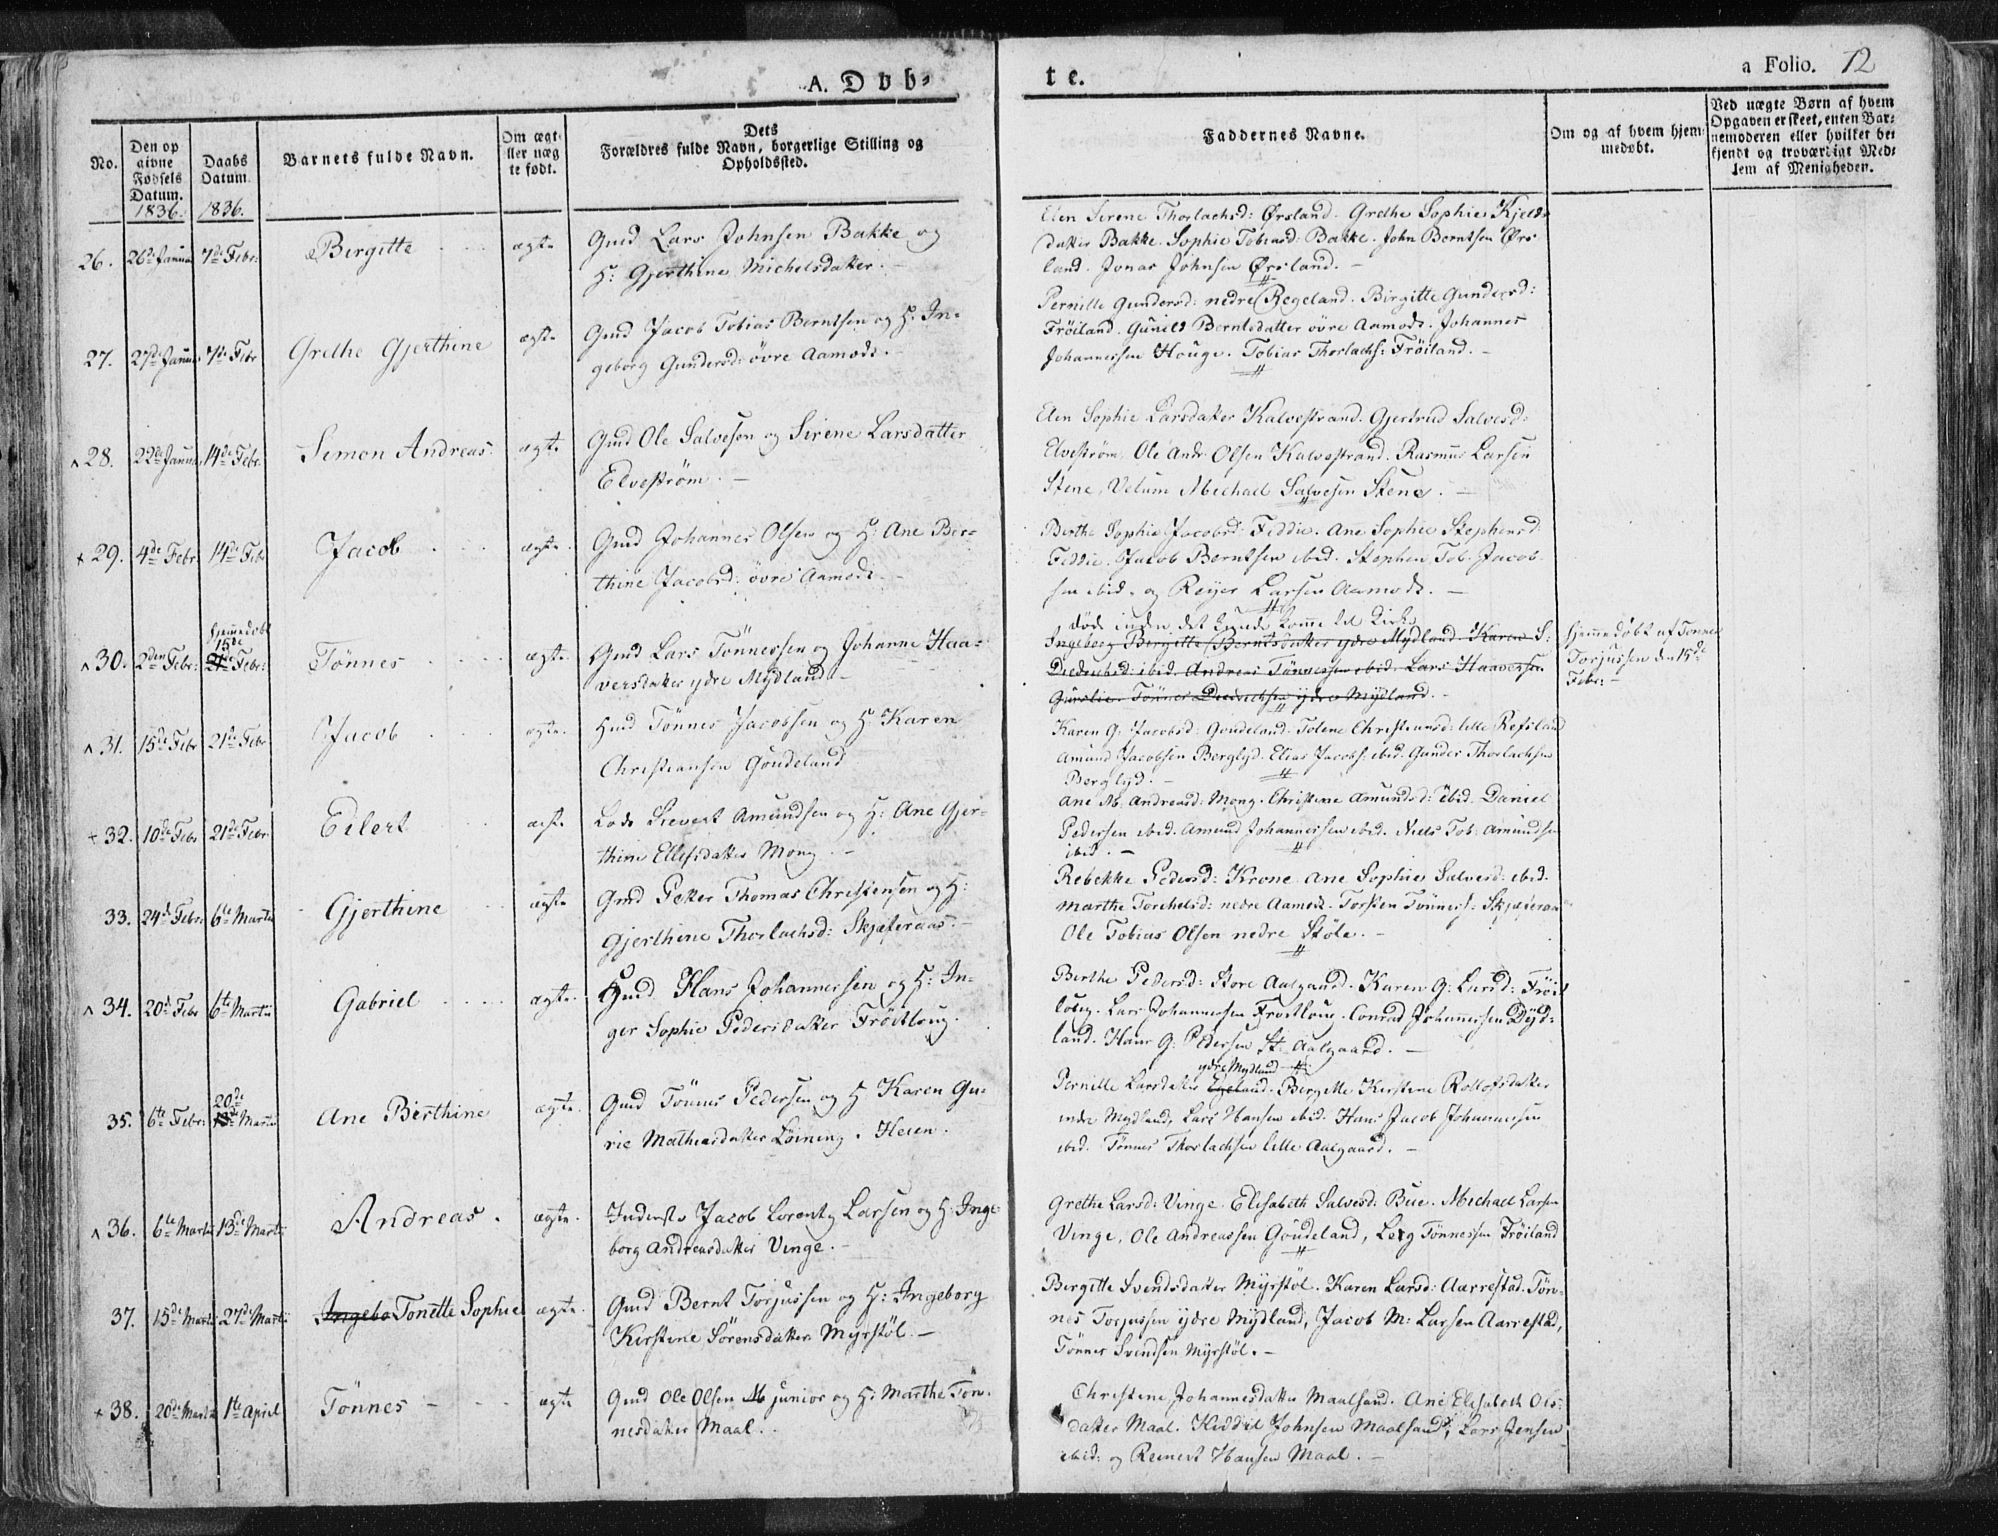 A. Døb-
te.
a Folio. 72
No.
Den op
givne
Fødsels
Datum.
1836.
Daabs
Datum.
1836.
Barnets fulde Navn.
Om ægte
eller uæg
te født.
Dets
Forældres fulde Navn, borgerlige Stilling og
Opholdssted.
Faddernes Navne.
Om og af hvem hjem-
medøbt.
Ved uægte Børn af hvem
Opgaven er skeet, enten Bar-
nemoderen eller hvilket be-
kjendt og troværdigt Med-
lem af Menigheden.
26. 26de Januar 7de Febr: Birgitte ægte
Gmd Lars Johnsen Bakke og
H: Gjerthine Michelsdatter.
Elen Serene Thorlachsd: Ørsland. Grethe Sophie Kjelds
datter Bakke. Sophie Tobiasd: Bakke. John Berntsen Ørs
land. Jonas Johnsen Ørsland.
27. 27de Januar 7de Febr Grethe Gjerthine ægte
Gmd Jacob Tobias Berntsen og H. In-
geborg Gundersd: övre Aamodt.
Pernille Gundersd: nedre Regeland. Birgitte Gundersd:
Fröiland. Gunild Berntsdatter övre Aamodt. Johannes
Johannessen Houge. Tobias Thorlachs: Fröiland.
28. 22de Januar 14de Febr: Semon Andreas ægte
Gmd Ole Salvesen og Serene Larsdatter
Elveström.
Elen Sophie Larsdatter Kalvestrand. Gjertrud Salvesd:
Elveström. Ole Andr. Olsen Kalvestrand. Rasmus Larsen
Stene, Michael Salvesen Stene.
29. 4de Febr. 14de Febr Jacob ægte
Gmd Johannes Olsen og H: Ane Ber-
thine Jacobsd: övre Aamodt.
Berthe Sophie Jacobsd: Feddie. Ane Sophie Stephensd:
Feddie. Jacob Berntsen ibid. Stephen Tob. Jacob-
sen ibid. og Reyer Larsen Aamodt.
30. 2den Febr: hjemmedøbt
15de
Febr: Tönnes ægte
Gmd Lars Tönnessen og Johanne Haa-
versdatter ydre Mydland
döde inden det kunde komme til Kirke
Ingeborg Birgitte Berntsdatter ydre Mydland. Karen S:
Diedrichsd: ibid. Andreas Tönnessen ibid. Lars Haaversen
Gursli. Tönnes Diedrichsen ydre Mydland.
Hjemmedøbt af Tönnes
Torjussen den 15de
Febr:
31. 15de Febr 21de Febr Jacob ægte.
Hmd Tönnes Jacobsen og H: Karen
Christiansen Goudeland
Karen G. Jacobsd: Goudeland. Tolene Christiansd: lille Refsland
Amund Jacobsen Berglyd. Elias Jacobs: ibid. Gunder Thorlachsen
Berglyd.
32. 10de Febr 21de Febr. Eilert ægte
Lods Sievert Amundsen og H: Ane Gjer-
thine Ellefsdatter Mong.
Ane M. Andreasd: Mong. Christine Amundsd: ibid. Daniel
Pedersen ibid. Amund Johannessen ibid. Niels Tob: Amundsen
ibid.
33. 24de Febr: 6te Martii Gjerthine ægte
Gmd Petter Thomas Christensen og H:
Gjerthine Thorlachsd: Skjæferaas.
Rebekke Pedersd: Krone. Ane Sophie Salvesd: ibid.
Marthe Torchelsd: nedre Aamodt. Torsten Tönness: Skjæferaas
Ole Tobias Olsen nedre Stöle.
34. 20de Febr 6te Martii Gabriel ægte.
Gmd Hans Johannessen og H: In-
ger Sophie Pedersdatter Fröitloug.
Berthe Pedersd: Store Aalgaard. Karen G: Larsd: Fröit
loug. Lars Johannessen Froitloug. Conrad Johannessen Dyd-
land. Hans G: Pedersen St: Aalgaard.
35. 6te Febr: 20de
13de Martii Ane Berthine ægte.
Gmd Tönnes Pedersen og H Karen Gu-
rie Mathiasdatter Löining. Heien.
ydre Mydland
Pernille Larsdatter Egeland. Bergitte Kirstine Rollofsdatter
indre Mydland, Lars Hansen ibid. Hans Jacob Johannessen
ibid. Tönnes Thorlachsen lille Aalgaard.
36. 6te Martii 13de Martii Andreas ægte.
Inderste Jacob Lorentz Larsen og H: Inge
borg Andreasdatter Vinge.
Grethe Larsd: Vinge. Elisabeth Salvesd: Bue. Michael Larsen
Vinge, Ole Andreassen Goudeland, Tönnessen Fröiland
37. 15de Martii 27de Martii Ingebo Tonette Sophie ægte.
Gmd Bernt Torjussen og H: Ingeborg
Kirstine Sörensdatter Myrstöl.
Bergitte Svendsdatter Myrstöl. Karen Larsd: Aarrestad. Tön-
nes Torjussen ydre Mydland, Jacob M: Larsen Aarrestad,
Tönnes Svendsen Myrstöl.
38. 20de Martii 1te April Tönnes ægte
Gmd Ole Olsen M junior og H: Marthe Tön-
nesdatter Maal.
Christine Johannesdatter Maalsand. Ane Elisabeth Ols-
datter Maal. Keddel Johnsen Maalsand, Lars Jensen
ibid: og Reinert Hansen Maal.